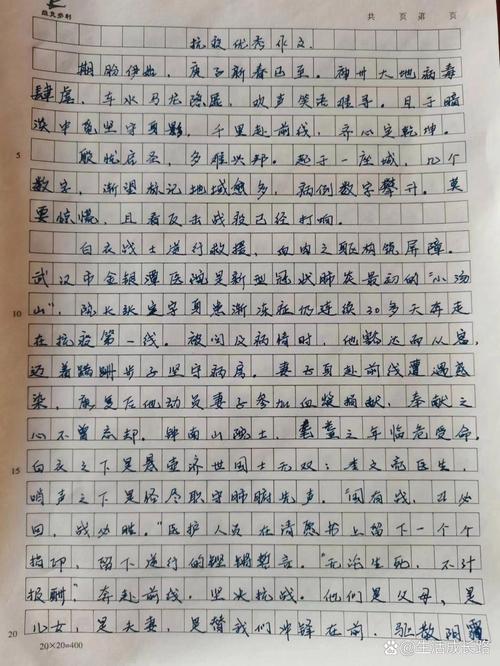 共 页 第 页
抗疫优秀作文.
期盼伊始，庚子新春已至。神州大地病毒
肆虐，车水马龙隐匿，欢声笑语难寻。且于暗
淡中觅坚守身影，千里赴前线，齐心定乾坤。
殷忧启圣，多难兴邦。起于一座城，几个
数字，渐望标记地域愈多，病例数字攀升。莫
要惊慌，且看反击战役已经打响。
白衣战士逆行救援，血肉之躯构筑屏障。
武汉市金银潭医院是新型冠状肺炎最初的“小汤
山”，院长张定宇身患渐冻症仍连续30多天奔走
在抗疫第一线。被问及病情时，他豁达而从容，
迈着蹒跚步子坚守病房。妻子身赴前线遭遇感
染，康复后他动员妻子参加血浆捐献，奉献之
心不曾忘却。钟南山院士，耄耋之年临危受命，
白衣之下是悬壶济世国士无双；李文亮医生，
哨声之下是恪尽职守肺腑先声。“闻有战，召必
回，战必胜。”医护人员在请愿书上留下一个个
指印，留下逆行的铿锵誓言。“无论生死，不计
报酬”奔赴前线，坚决抗战。他们是父母，是
儿女，是夫妻，是替我们冲锋在前，驱散阴霾
5
10
15
20
20×20=400
@生活成长路